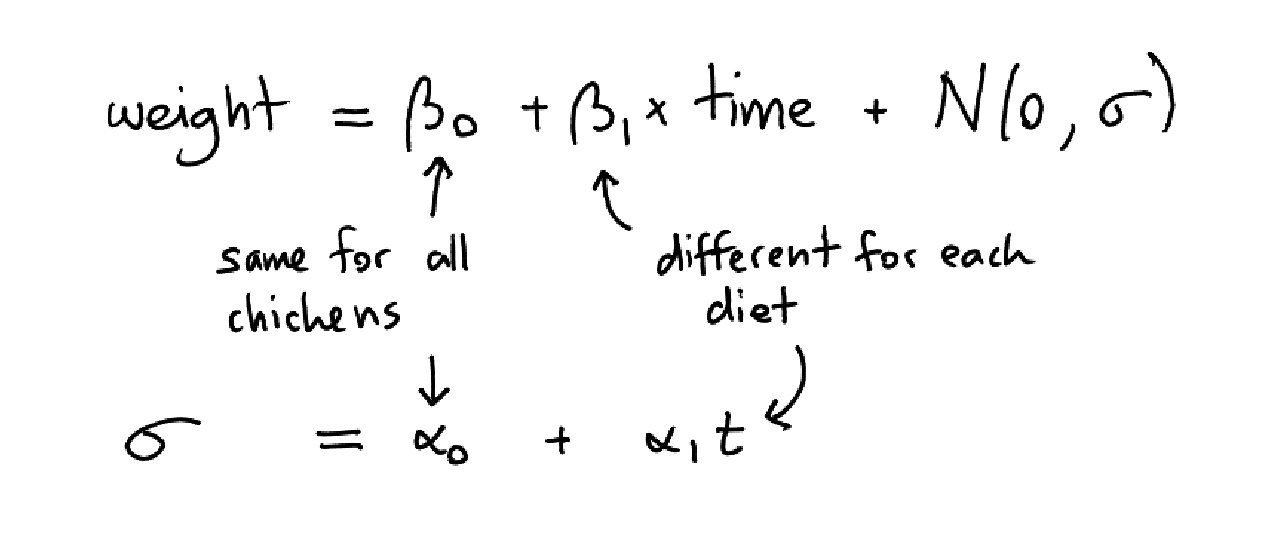 weight = β₀ + β₁ × time + N(0, σ)
same for all
chickens
different for each
diet
σ = α₀ + α₁ t